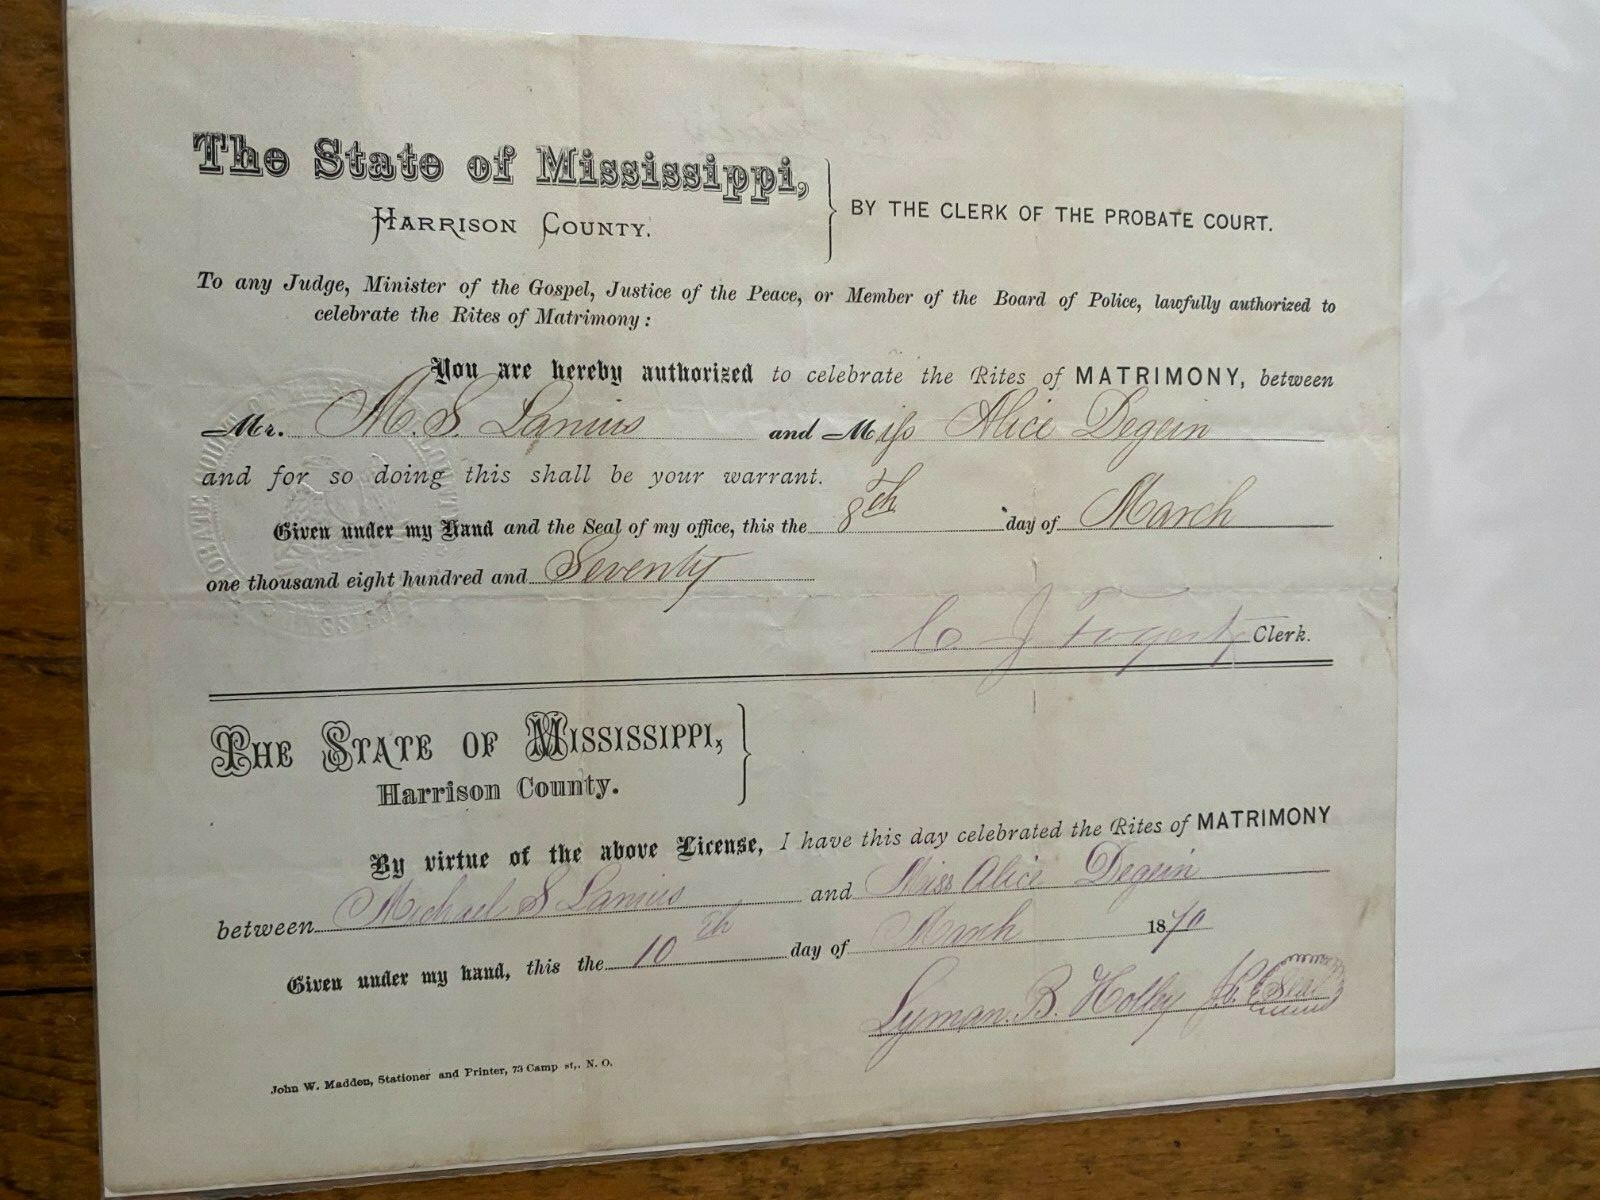 The State of Mississippi,
HARRISON COUNTY.
BY THE CLERK OF THE PROBATE COURT.
To any Judge, Minister of the Gospel, Justice of the Peace, or Member of the Board of Police, lawfully authorized to
celebrate the Rites of Matrimony:
You are hereby authorized to celebrate the Rites of MATRIMONY, between
Mr. M. S. Lanius and Miss Alice Degein
and for so doing this shall be your warrant.
Given under my Hand and the Seal of my office, this the 8th day of March
one thousand eight hundred and Seventy
C. J. Fogerty Clerk.
THE STATE OF MISSISSIPPI,
Harrison County.
By virtue of the above License, I have this day celebrated the Rites of MATRIMONY
between Michael S Lanius and Miss Alice Degein
Given under my hand, this the 10th day of March 1870
Lyman B. Seal
John W. Madden, Stationer and Printer, 73 Camp st,. N. O.